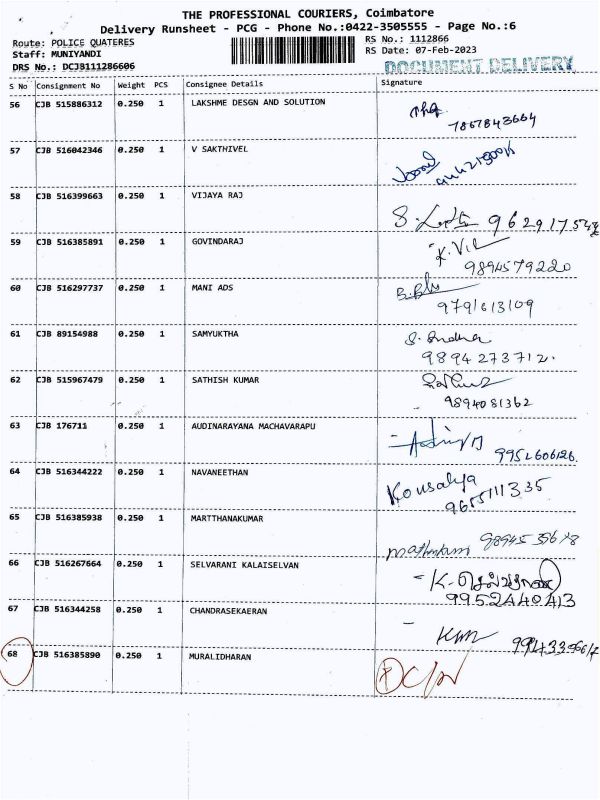 THE PROFESSIONAL COURIERS, Coimbatore
Delivery Runsheet - PCG - Phone No.:0422-3505555 - Page No.:6
Route: POLICE QUATERES RS No.: 1112866
Staff: MUNIYANDI RS Date: 07-Feb-2023
DRS No.: DCJB111286606 DOCUMENT DELIVERY
S No Consignment No Weight PCS Consignee Details Signature
56 CJB 515886312 0.250 1 LAKSHME DESGN AND SOLUTION
7867843664
57 CJB 516042346 0.250 1 V SAKTHIVEL
58 CJB 516399663 0.250 1 VIJAYA RAJ
59 CJB 516385891 0.250 1 GOVINDARAJ
9894579220
60 CJB 516297737 0.250 1 MANI ADS
9791613109
61 CJB 89154988 0.250 1 SAMYUKTHA
S. Indra
9894273712.
62 CJB 515967479 0.250 1 SATHISH KUMAR
9894081362
63 CJB 176711 0.250 1 AUDINARAYANA MACHAVARAPU
9952606126.
64 CJB 516344222 0.250 1 NAVANEETHAN
Kousalya
9655111335
65 CJB 516385938 0.250 1 MARTTHANAKUMAR
66 CJB 516267664 0.250 1 SELVARANI KALAISELVAN
9952440413
67 CJB 516344258 0.250 1 CHANDRASEKAERAN
68 CJB 516385890 0.250 1 MURALIDHARAN